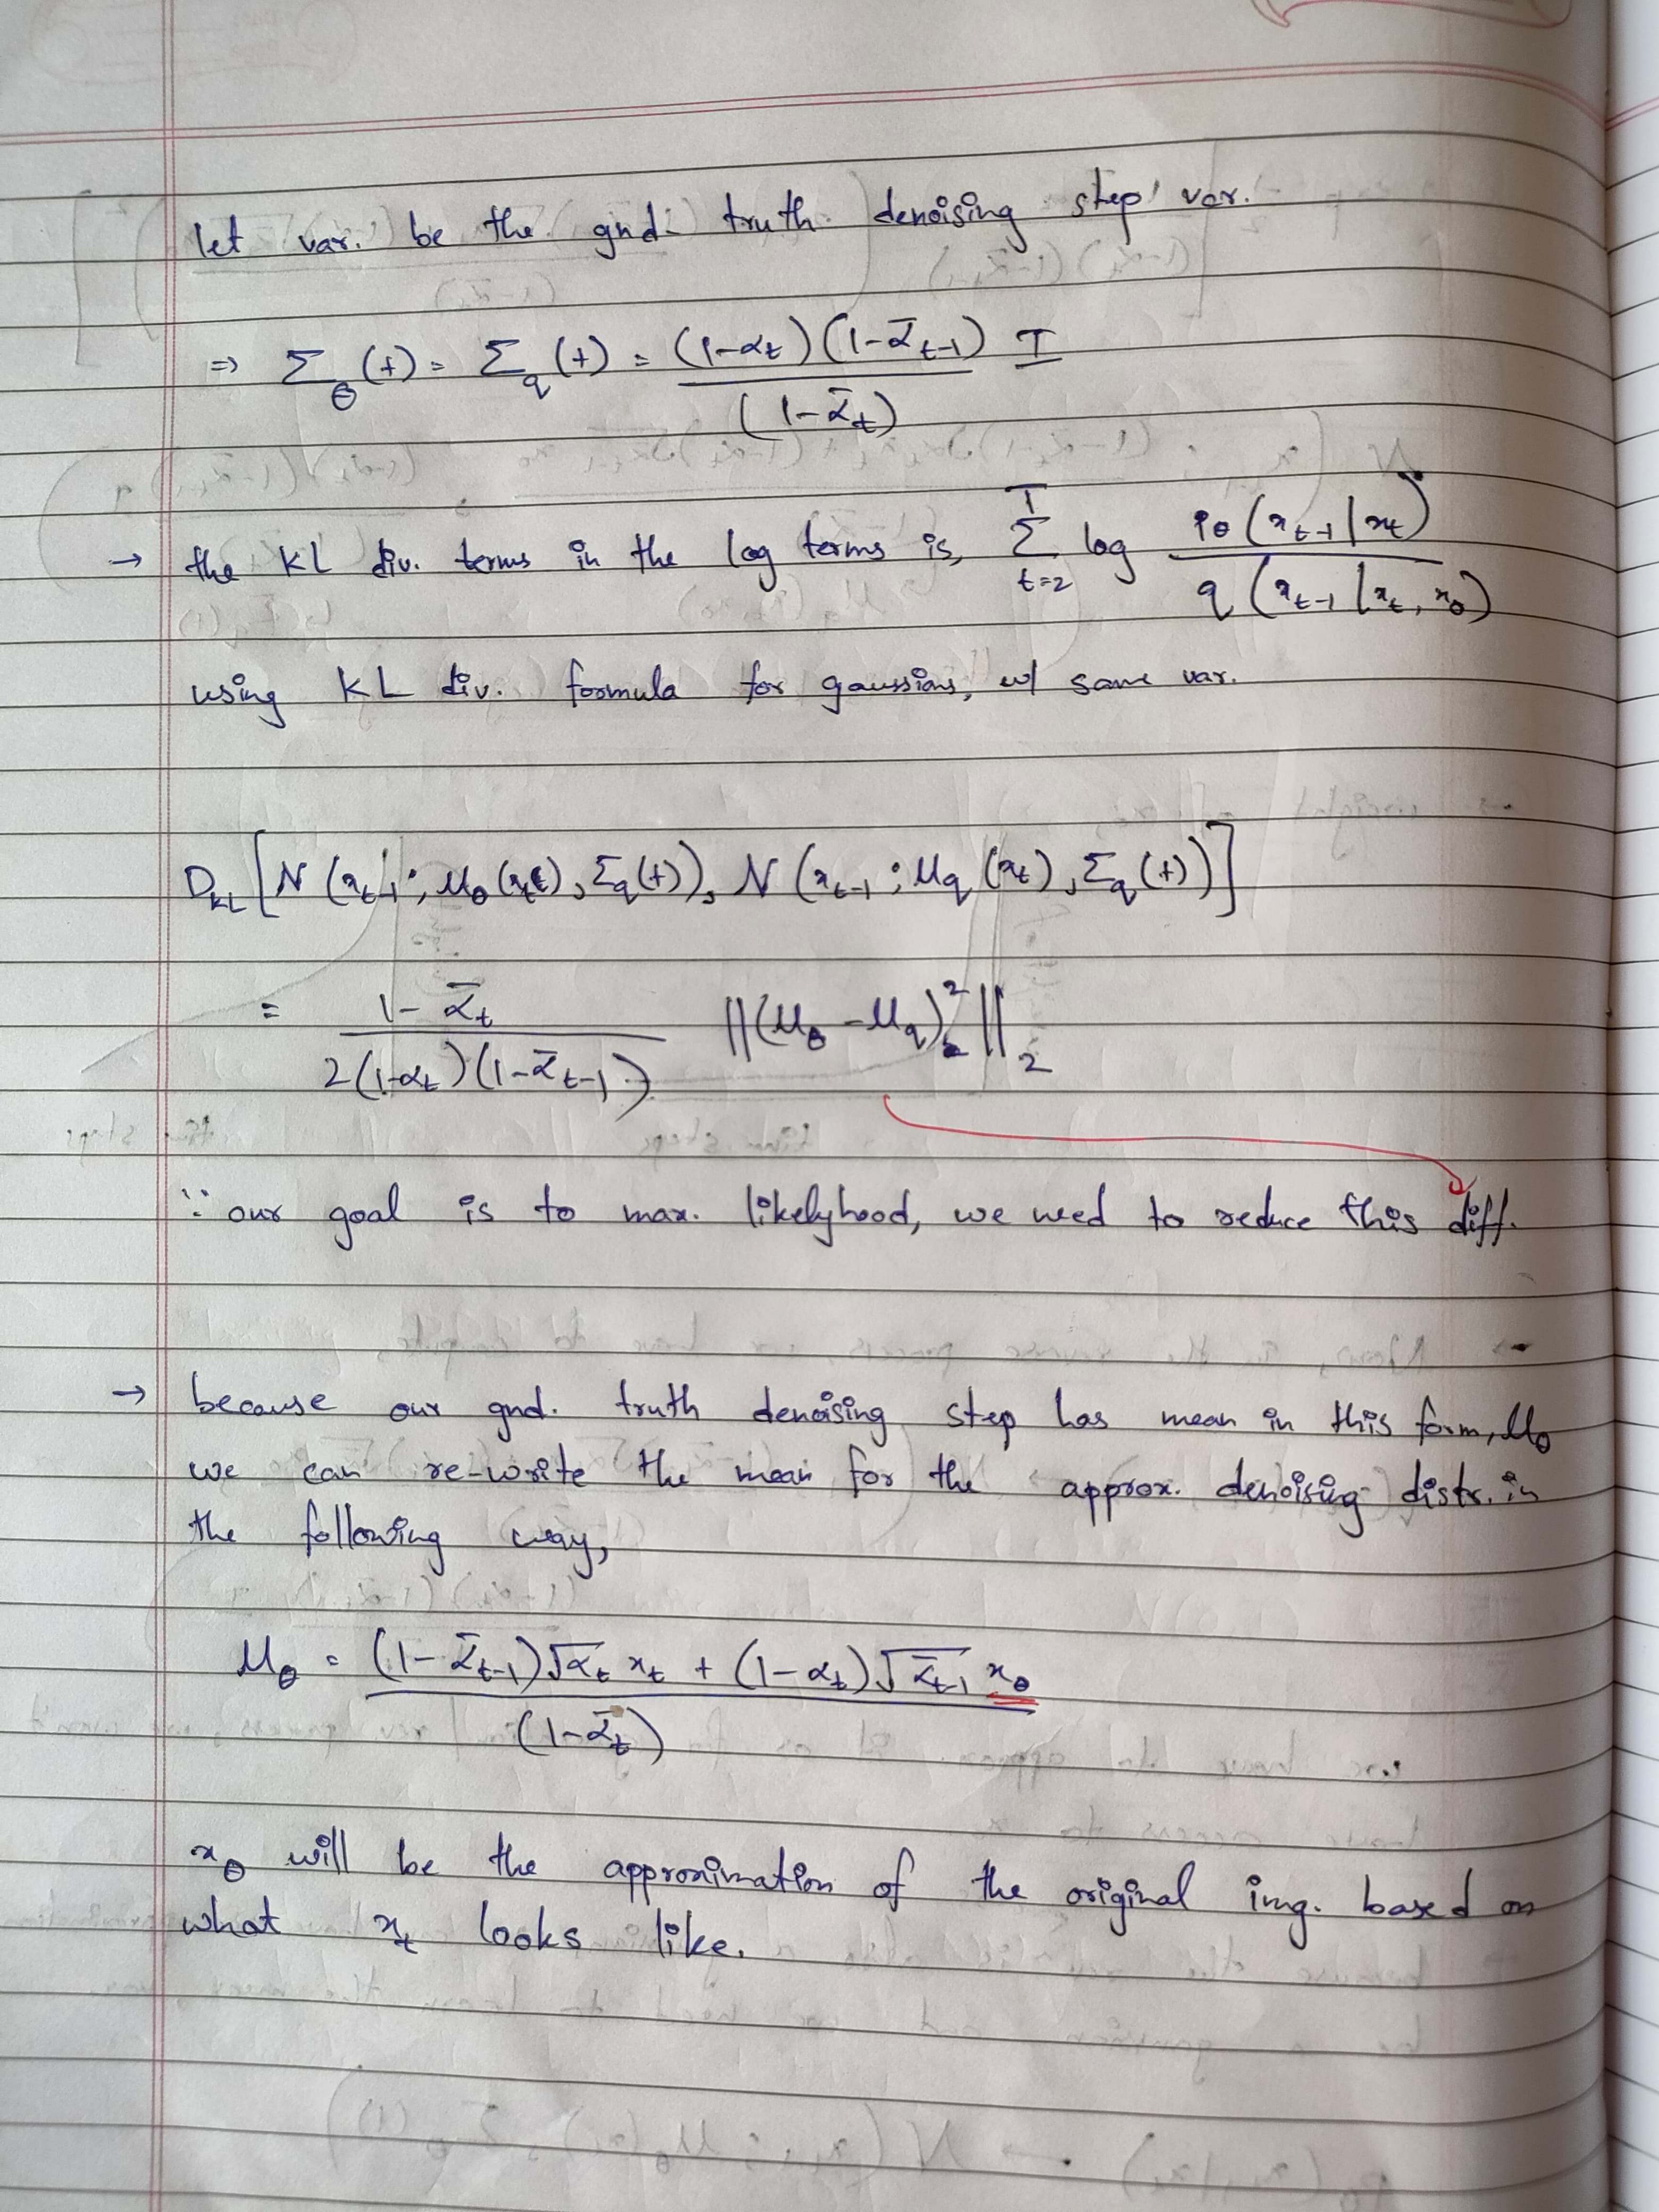 let var. be the gnd. truth denoising step var.
⇒ Σ_θ(t) = Σ_q(t) = (1-α_t)(1-ᾱ_{t-1}) I / (1-ᾱ_t)
→ the KL div. terms in the log terms is, Σ_{t=2}^{T} log p_θ(x_{t-1}|x_t) / q(x_{t-1}|x_t, x_0)
using KL div. formula for gaussians, w/ same var.
D_{KL}[N(x_{t-1}; μ_θ(x_t), Σ_q(t)), N(x_{t-1}; μ_q(x_t), Σ_q(t))]
= 1-ᾱ_t / 2(1-α_t)(1-ᾱ_{t-1}) ||(μ_θ - μ_q)^2||_2
∵ our goal is to max. likelyhood, we need to reduce this diff.
→ because our gnd. truth denoising step has mean in this form, μ_θ
we can re-write the mean for the approx. denoising distr. in
the following way,
μ_θ = (1-ᾱ_{t-1})√α_t x_t + (1-α_t)√ᾱ_{t-1} x_θ / (1-ᾱ_t)
x_θ will be the approximation of the original img. based on
what x_t looks like.